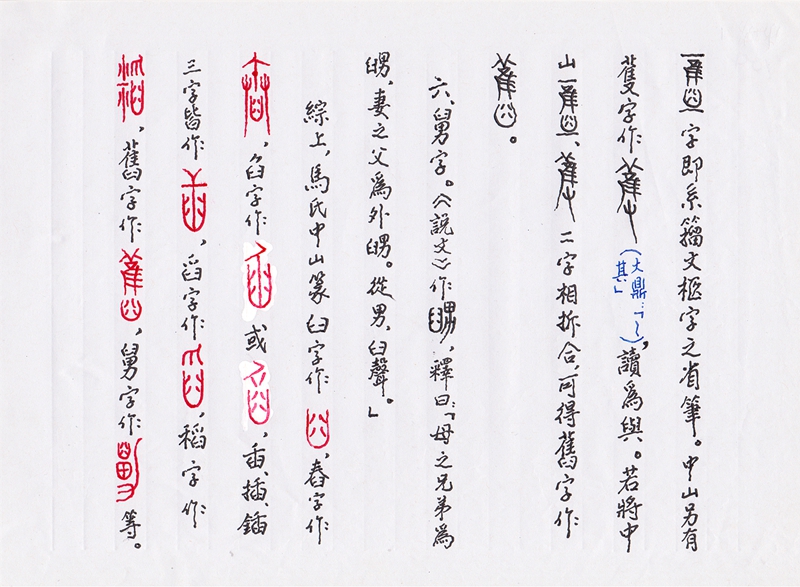 字即系籀文柩字之省筆。中山另有
蒦字作（大鼎：「~其」），讀爲與。若將中
山、二字相拆合，可得舊字作
。
六、舅字。《說文》作，釋曰：「母之兄弟爲
舅，妻之父爲外舅。從男，臼聲。」
綜上，馬氏中山篆臼字作，舂字作
，臽字作或，臿、插、鍤
三字皆作，舀字作，稻字作
，舊字作，舅字作等。